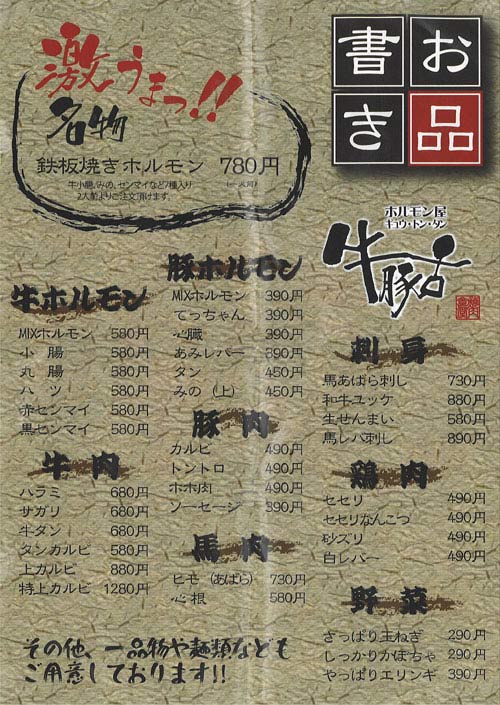 お品書き
激うまっ!!
名物
鉄板焼きホルモン 780円
(一人前)
牛小腸、みの、センマイなど7種入り
2人前よりご注文頂けます。
ホルモン屋
ギュウ・トン・タン
牛豚舌
牛ホルモン
MIXホルモン 580円
小腸 580円
丸腸 580円
ハツ 580円
赤センマイ 580円
黒センマイ 580円
牛肉
ハラミ 680円
サガリ 680円
牛タン 680円
タンカルビ 580円
上カルビ 880円
特上カルビ 1280円
豚ホルモン
MIXホルモン 390円
てっちゃん 390円
心臓 390円
あみレバー 390円
タン 450円
みの(上) 450円
豚肉
カルビ 490円
トントロ 490円
ホホ肉 490円
ソーセージ 390円
馬肉
ヒモ(あばら) 730円
心根 580円
刺身
馬あばら刺し 730円
和牛ユッケ 880円
生せんまい 580円
馬レバ刺し 890円
鶏肉
セセリ 490円
セセリなんこつ 490円
砂ズリ 490円
白レバー 490円
野菜
さっぱり玉ねぎ 290円
しっかりかぼちゃ 290円
やっぱりエリンギ 390円
その他、一品物や麺類なども
ご用意しております!!